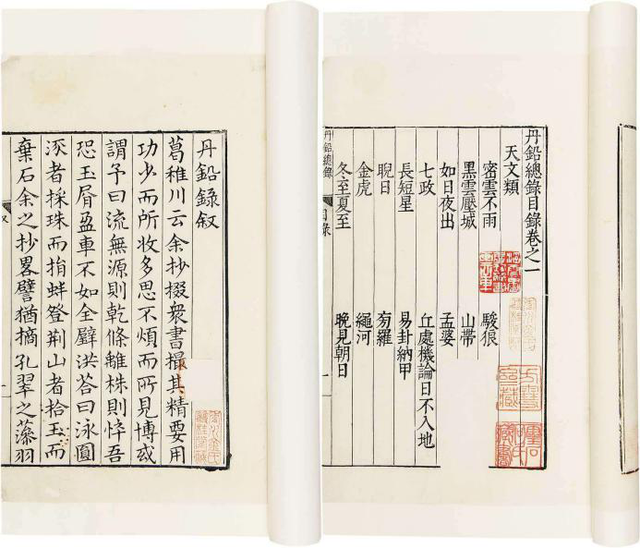 丹鉛錄敘
葛稚川云余抄掇衆書撮其精要用
功少而所收多思不煩而所見博或
謂予曰流無源則乾條離株則悴吾
恐玉屑盈車不如全璧洪荅曰泳圓
流者採珠而捐蚌登荆山者拾玉而
棄石余之抄畧譬猶摘孔翠之藻羽
丹鉛總錄目錄卷之一
天文類
密雲不雨
駿狼
黑雲壓城
山帶
如日夜出
孟婆
七政
丘處機論日不入地
長短星
易卦納甲
睨日
匑羅
金虎
繩河
冬至夏至
晚見朝日
丹鉛總錄
目錄
一